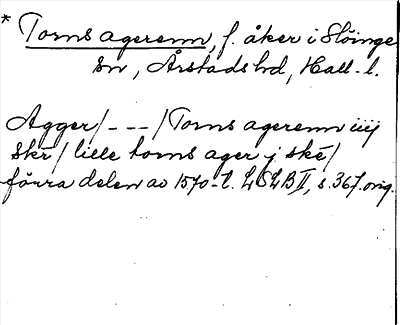 * Torns agerenn, f. åker i Slöinge
sn, Årstads hd, Hall. l.
Agger/---/Torns agerenn iiij
Skē/ lille torns ager j skē/
förra delen av 1570-t. LSLB II, s. 367. orig.